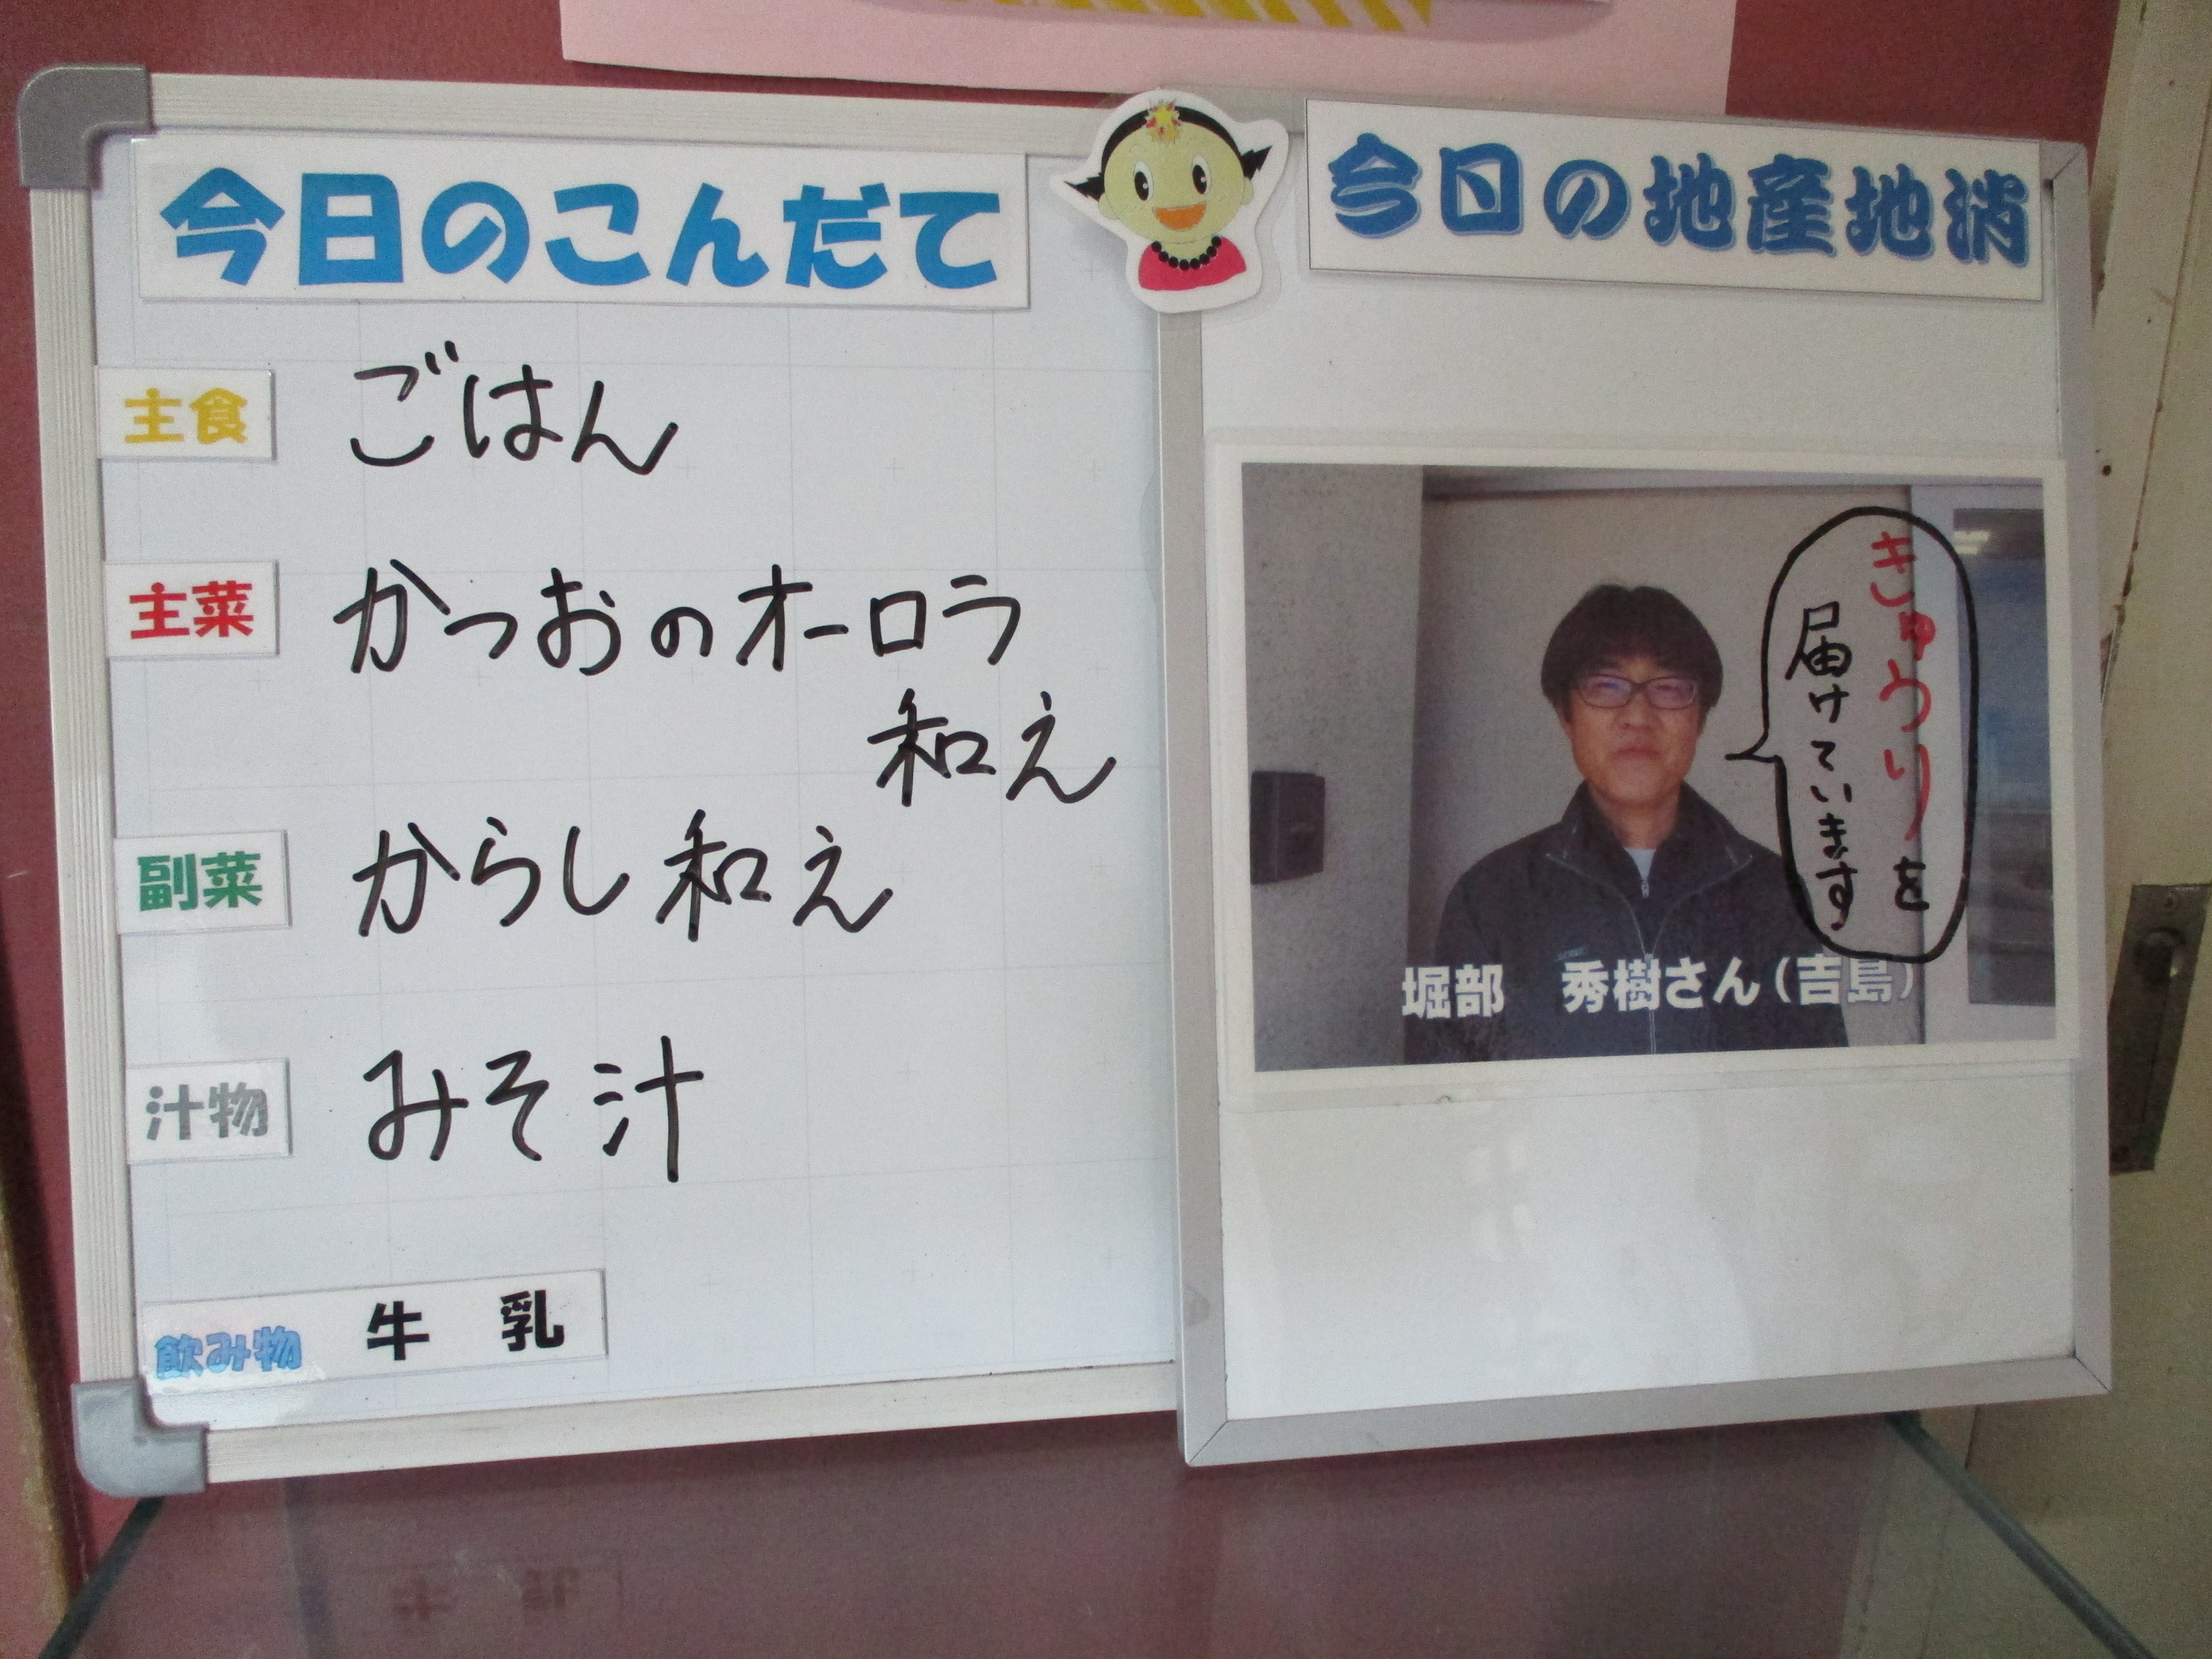 今日のこんだて
主食 ごはん
主菜 かつおのオーロラ
和え
副菜 からし和え
汁物 みそ汁
飲み物 牛乳
今日の地産地消
きゅうりを
届けています
堀部 秀樹さん(吉島)